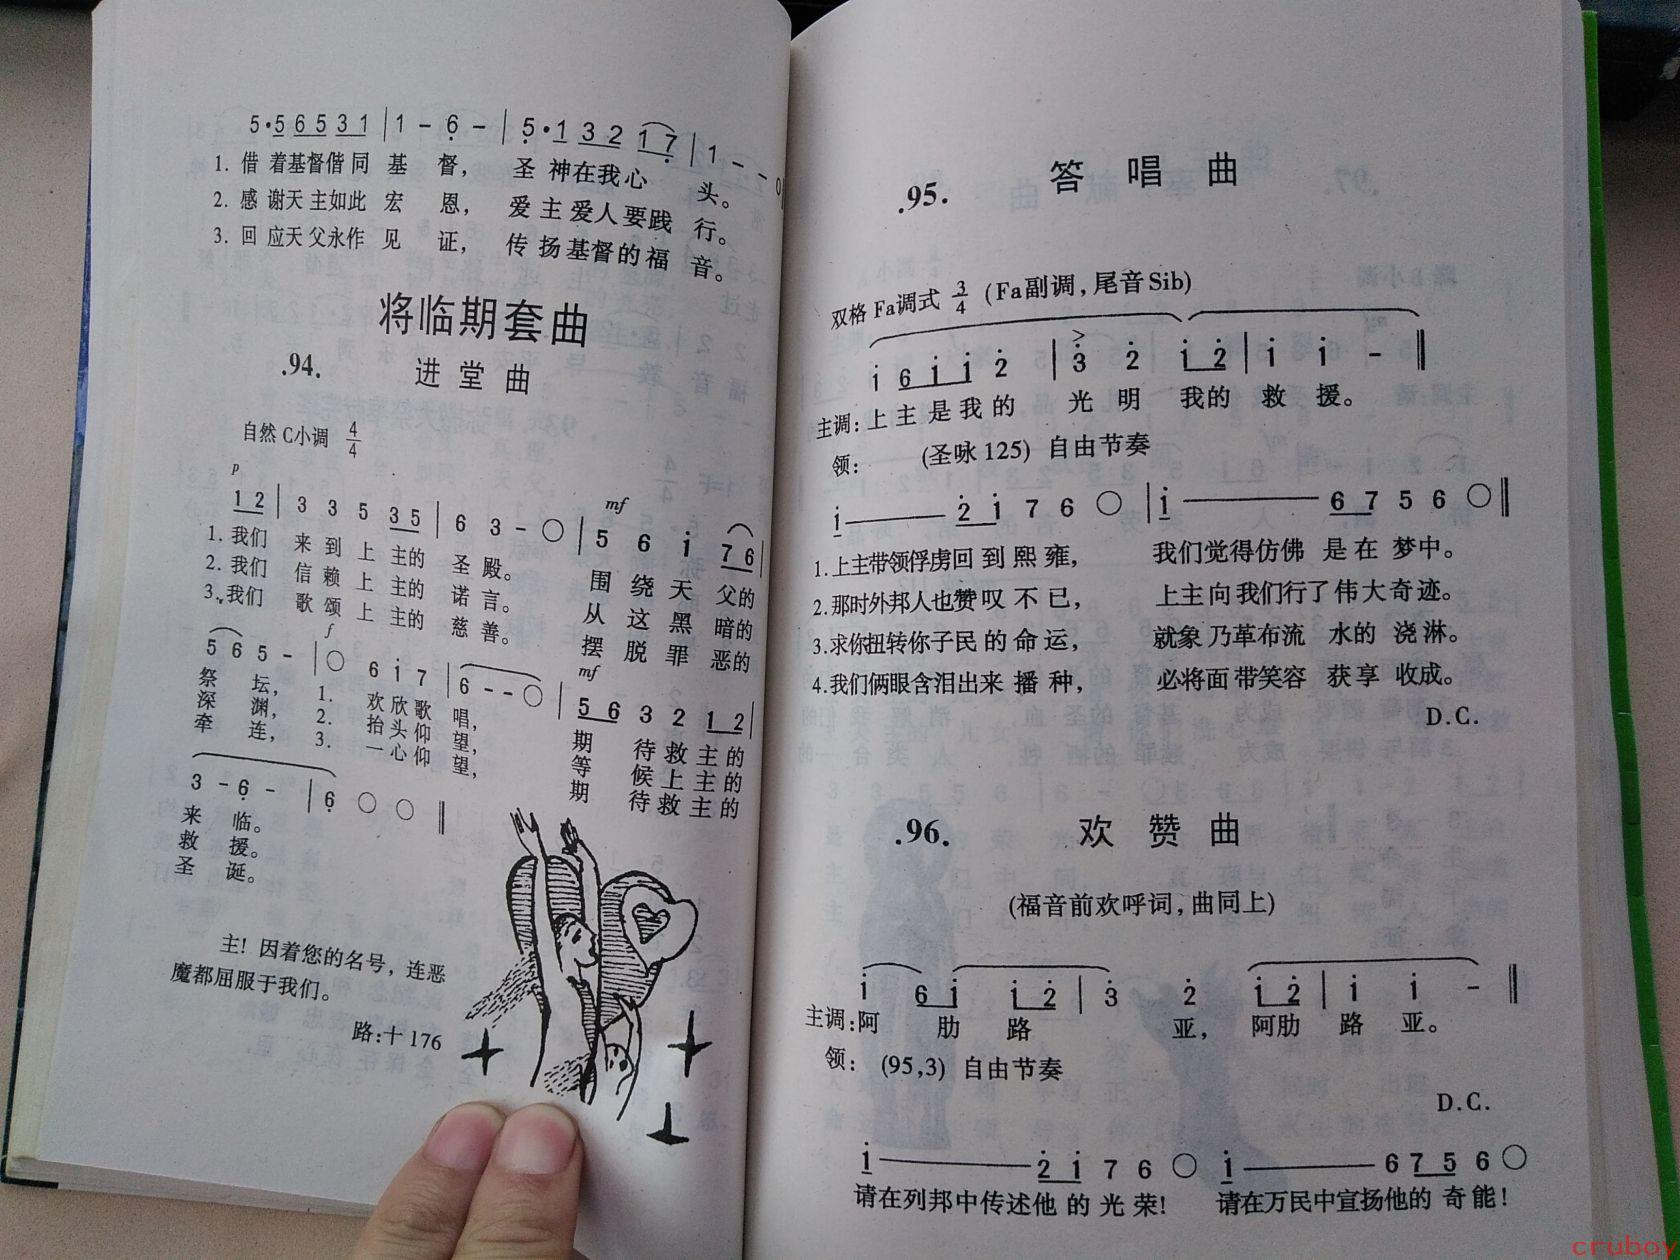 5·5 6 5 3 1 | 1 - 6 - | 5·1 3 2 1 7 | 1 - - 0
1. 借着基督偕同基督，圣神在我心头。
2. 感谢天主如此宏恩，爱主爱人要践行。
3. 回应天父永作见证，传扬基督的福音。
将临期套曲
.94.
进堂曲
自然 C小调 4/4
p
mf
1 2 | 3 3 5 3 5 | 6 3 - ○ | 5 6 i 7 6 |
1. 我们 来到上主的圣殿。围绕天父的
2. 我们 信赖上主的诺言。从这黑暗的
3. 我们 歌颂上主的慈善。摆脱罪恶的
f
mf
5 6 5 - | ○ 6 i 7 | 6 - - ○ | 5 6 3 2 1 2 |
祭坛，1. 欢欣歌唱，期待救主的
深渊，2. 抬头仰望，等候上主的
牵连，3. 一心仰望，期待救主的
3 - 6 - | 6 ○ ○ ‖
来临。
救援。
圣诞。
主！因着您的名号，连恶
魔都屈服于我们。
路:十 176
.95.
答唱曲
双格 Fa调式 3/4 (Fa副调，尾音Sib)
i 6 i i 2 | 3 2 i 2 | i i - ‖
主调: 上主是我的 光明 我的救援。
领: (圣咏 125) 自由节奏
i —— 2 i 7 6 ○ | i —— 6 7 5 6 ○ ‖
1.上主带领俘虏回到熙雍，我们觉得仿佛是在梦中。
2.那时外邦人也赞叹不已，上主向我们行了伟大奇迹。
3.求你扭转你子民的命运，就象乃革布流水的浇淋。
4.我们俩眼含泪出来播种，必将面带笑容获享收成。
D.C.
.96.
欢赞曲
(福音前欢呼词，曲同上)
i 6 i i 2 | 3 2 i 2 | i i - ‖
主调:阿肋路亚，阿肋路亚。
领: (95,3) 自由节奏
D.C.
i —— 2 i 7 6 ○ i —— 6 7 5 6 ○
请在列邦中传述他的光荣! 请在万民中宣扬他的奇能!
cruboy